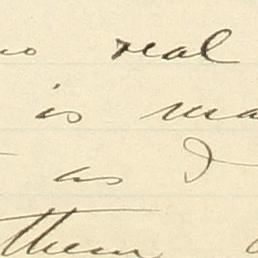 no real
is ma
as I
them